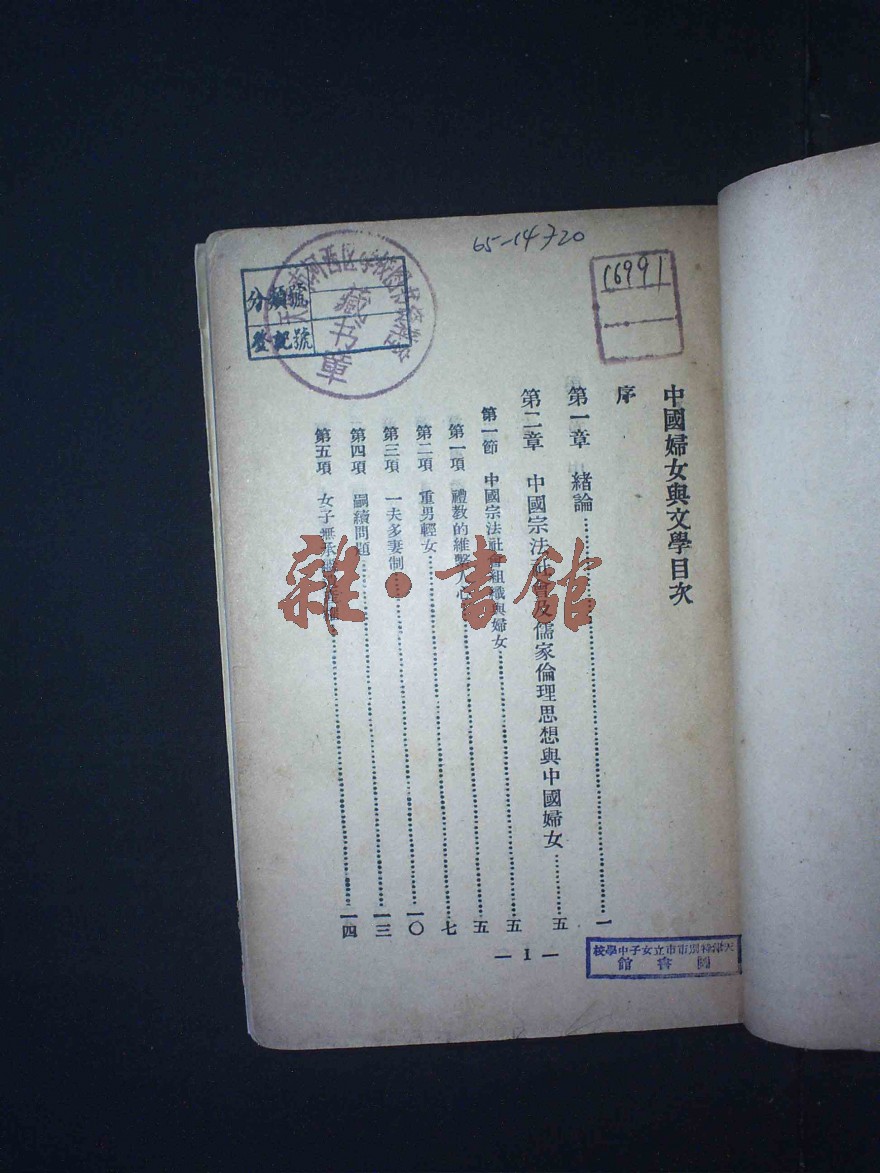 65-14720
16991
分類號
登記號
藏书章
中國婦女與文學目次
序
第一章 緒論……一
第二章 中國宗法社會及儒家倫理思想與中國婦女……五
第一節 中國宗法社會組織與婦女……五
第一項 禮教的維繫人心……五
第二項 重男輕女……七
第三項 一夫多妻制……一〇
第四項 嗣續問題……一三
第五項 女子無承……一四
— 1 —
天津特別市市立女子中學校
圖書館
雜·書館